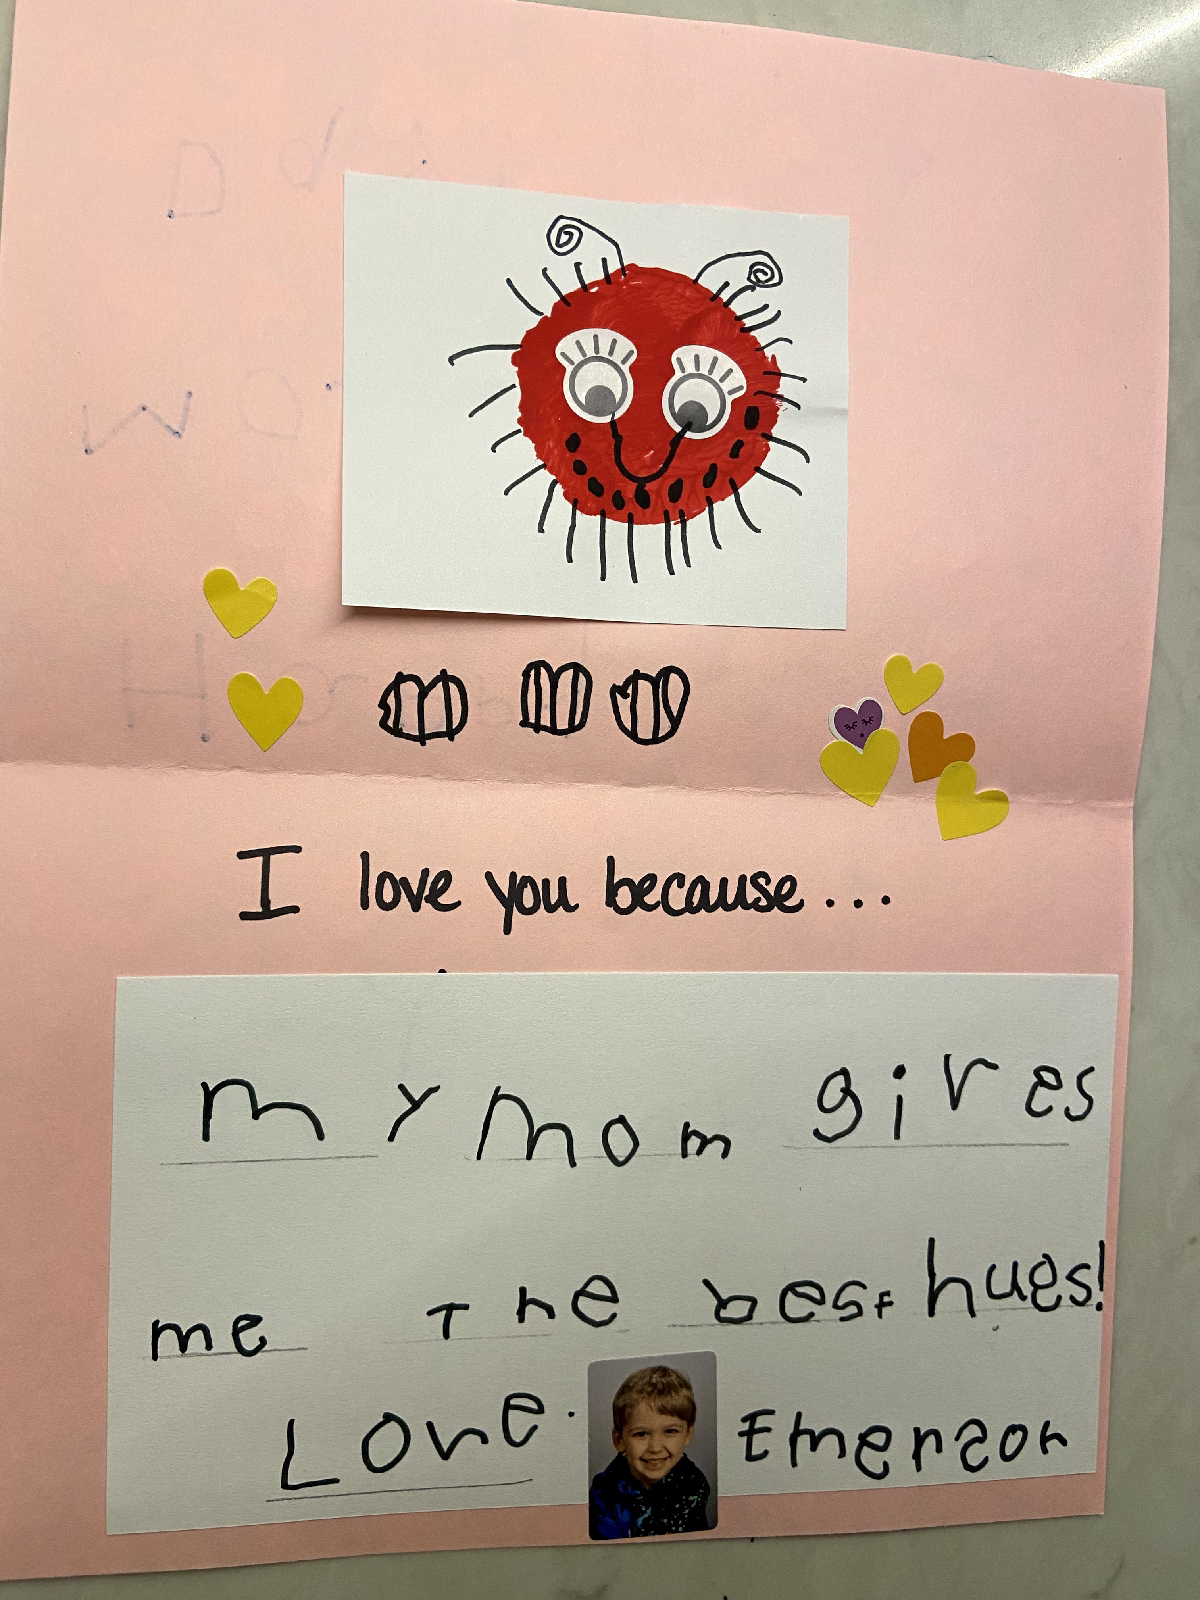 I love you because...
my mom gives
me The best hugs!
Love Emerson